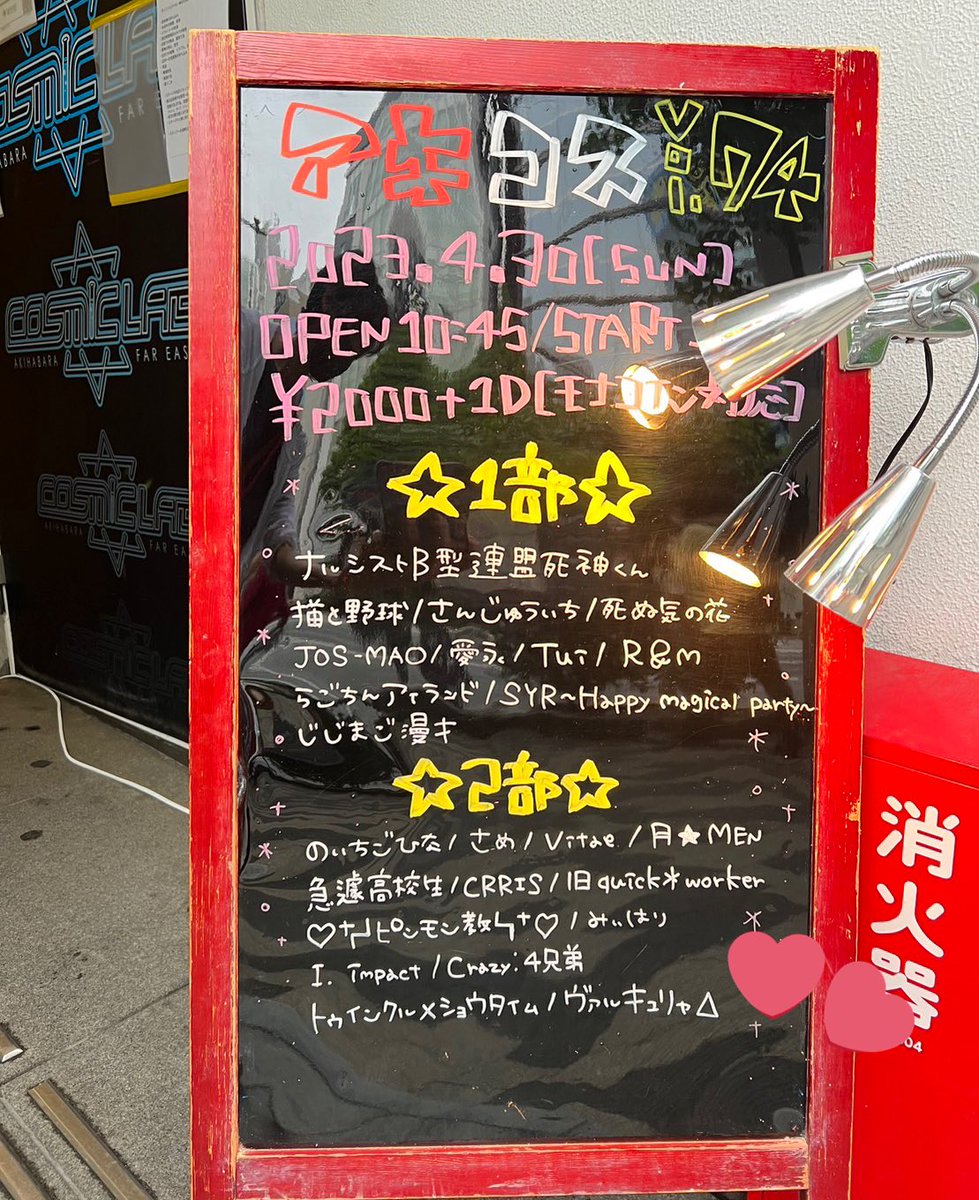 アキコスVol.74
2023.4.30[SUN]
OPEN 10:45/START
¥2000+1D
☆1部☆
ナルシストB型連盟死神くん
猫と野球/さんじゅういち/死ぬ気の花
JOS-MAO/愛う。/Tui/R&M
らごちんアイランド/SYR~Happy magical party~
じじまご漫才
☆2部☆
のいちごひな/さめ/Vitae/月★MEN
急遽高校生/CRRIS/旧quick*worker
♡†┦ピンモン教ㄣ†♡/みぃはり
I. impact/Crazy:4兄弟
トゥインクル×ショウタイム/ヴァルキュリャ△
COSMIC LAB
AKIHABARA FAR EAS
COSMIC LAB
AKIHABARA FAR EAS
消火器
04